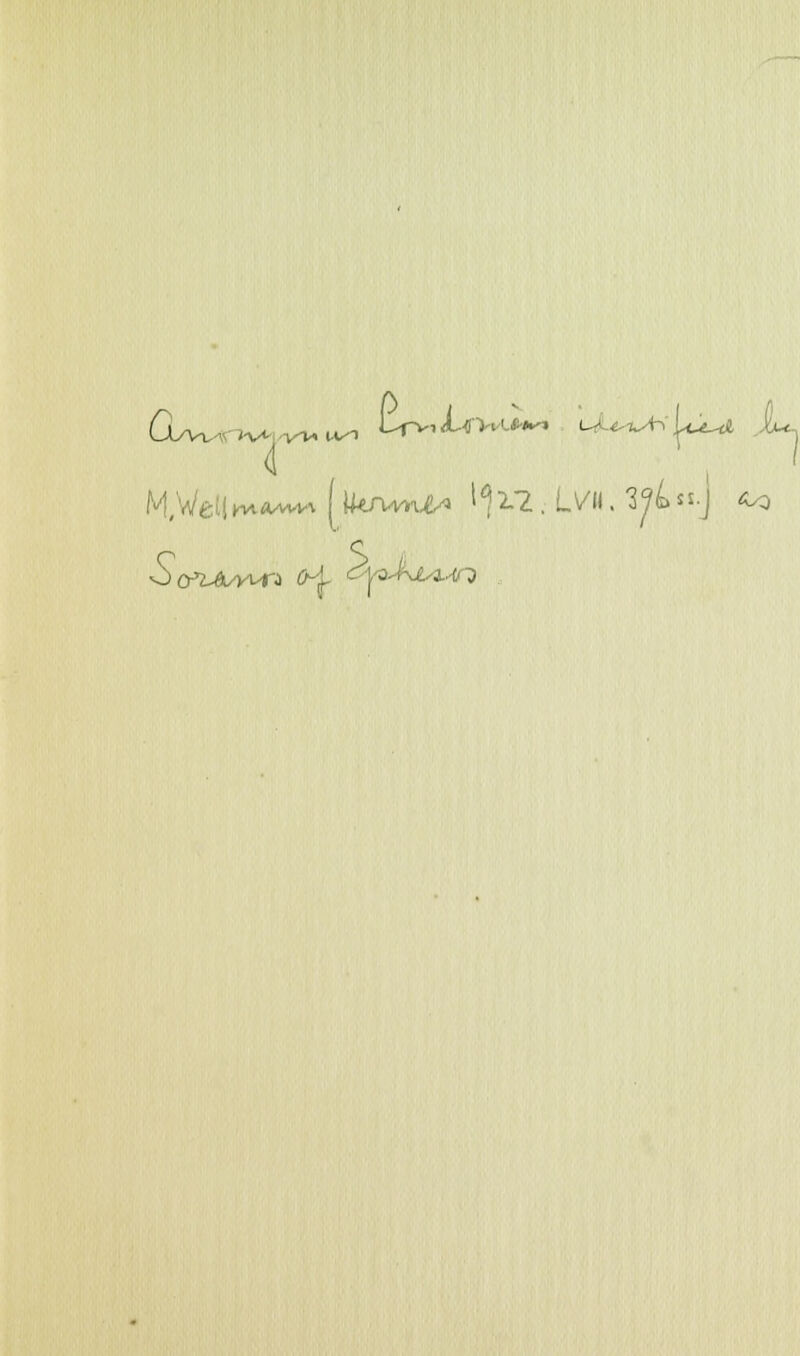 Anonymus Londiniensis identified by
M. Wellmann [Hermes 1922. LVII. 396 ss.] as
Soranos of Ephesos